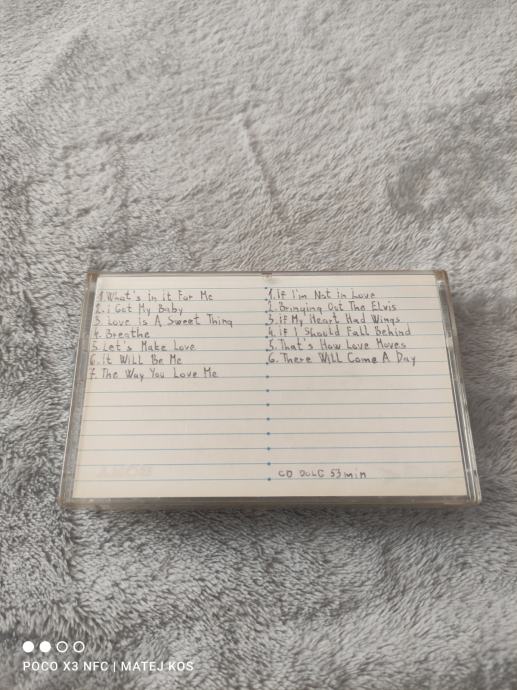 1. What's in It For Me
2. i Got My Baby
3. Love is A Sweet Thing
4. Breathe
5. Let's Make Love
6. It Will Be Me
7. The Way You Love Me
1. If I'm Not in Love
2. Bringing Out The Elvis
3. if My Heart Had Wings
4. if I Should Fall Behind
5. That's How Love Moves
6. There Will Come A Day
CD 53 min
POCO X3 NFC | MATEJ KOS